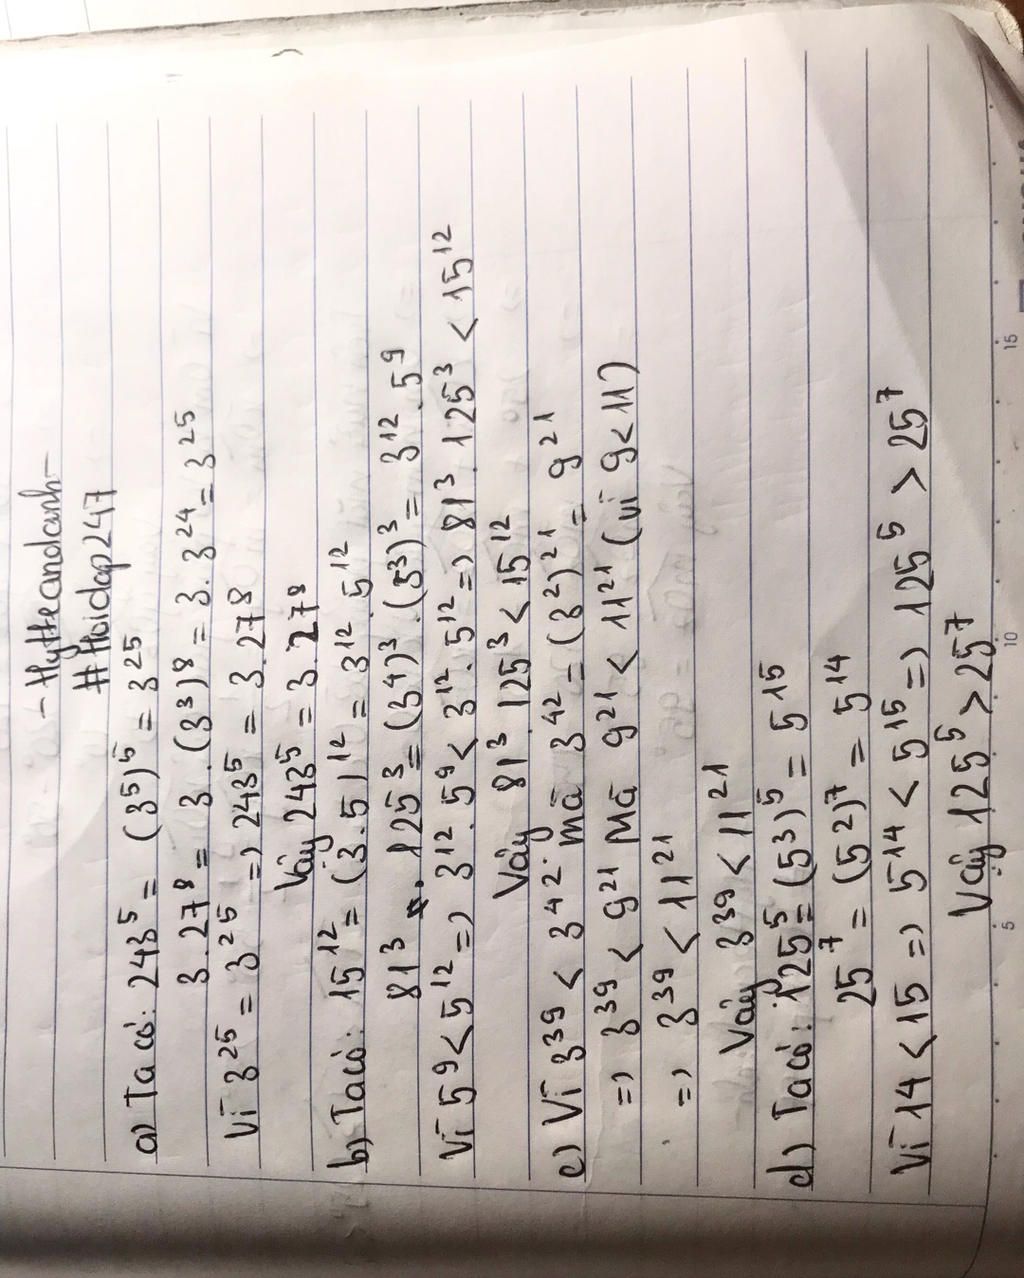 - Hytteandanh-
# Hoidap247
a) Ta có: 243⁵ = (3⁵)⁵ = 3²⁵
3.27⁸ = 3.(3³)⁸ = 3.3²⁴ = 3²⁵
Vì 3²⁵ = 3²⁵ => 243⁵ = 3.27⁸
Vậy 243⁵ = 3.27⁸
b) Ta có: 15¹² = (3.5)¹² = 3¹².5¹²
81³.125³ = (3⁴)³.(5³)³ = 3¹².5⁹
Vì 5⁹ < 5¹² => 3¹².5⁹ < 3¹².5¹² => 81³.125³ < 15¹²
Vậy 81³.125³ < 15¹²
c) Vì 3³⁹ < 3⁴² mà 3⁴² = (3²)²¹ = 9²¹
=> 3³⁹ < 9²¹ Mà 9²¹ < 11²¹ (vì 9<11)
=> 3³⁹ < 11²¹
Vậy 3³⁹ < 11²¹
d) Ta có: 125⁵ = (5³)⁵ = 5¹⁵
25⁷ = (5²)⁷ = 5¹⁴
Vì 14 < 15 => 5¹⁴ < 5¹⁵ => 125⁵ > 25⁷
Vậy 125⁵ > 25⁷
5 10 15